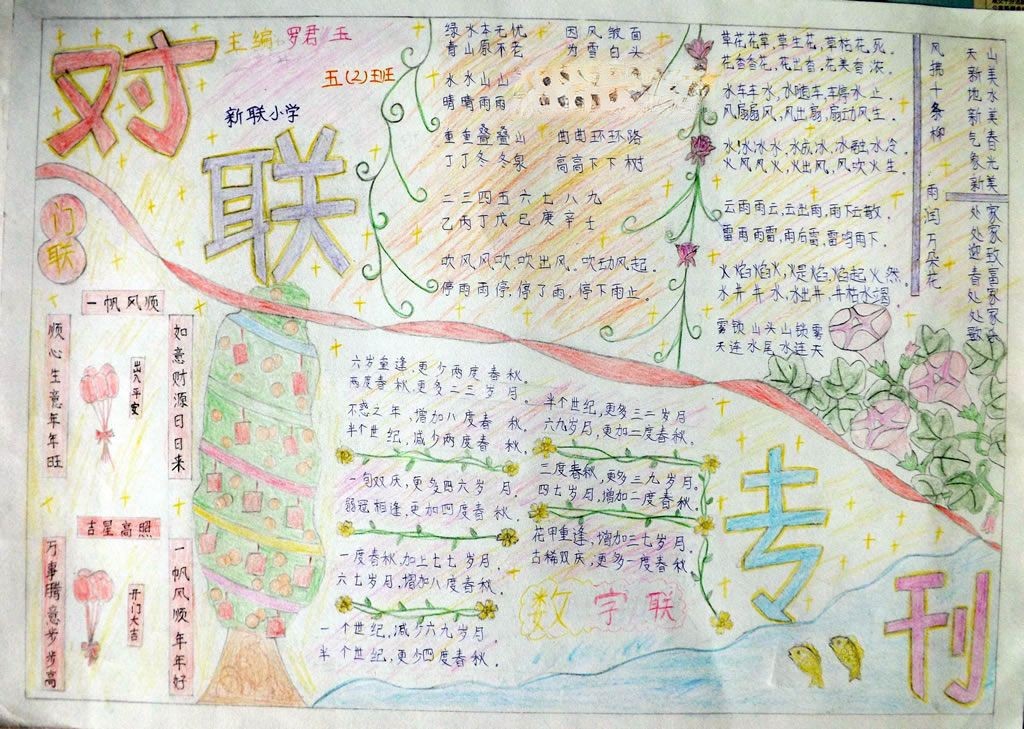 对联
专刊
主编 罗君玉
五(2)班
新联小学
绿水本无忧 因风皱面
青山原不老 为雪白头
水水山山
晴晴雨雨
重重叠叠山 曲曲环环路
丁丁冬冬泉 高高下下树
二三四五六七八九
乙丙丁戊己庚辛壬
吹风风吹,吹出风,吹动风起。
停雨雨停,停了雨,停下雨止。
草花花草,草生花,草枯花死。
花香香花,花出香,花美香浓。
水车车水,水随车,车停水止。
风扇扇风,风出扇,扇动风生。
水冰冰水,水成冰,冰融水冷。
火风风火,火出风,风吹火生。
云雨雨云,云出雨,雨下云散。
雷雨雨雷,雨后雷,雷鸣雨下。
火焰焰火,火是焰,焰起火然,
水井井水,水出井,井枯水竭。
雾锁山头山锁雾
天连水尾水连天
风拂十条柳
雨润万朵花
天新地新气象新
处处迎春处处歌
山美水美春光美
家家致富家家乐
门联
一帆风顺
顺心生意年年旺
出入平安
如意财源日日来
吉星高照
万事腾意步步高
开门大吉
一帆风顺年年好
六岁重逢,更少两度春秋。
两度春秋,更多二三岁月。
不惑之年,增加八度春秋。
半个世纪,减少两度春秋。
一旬双庆,更多四六岁月,
弱冠相逢,更加四度春秋。
一度春秋,加上七七岁月,
六七岁月,增加八度春秋。
一个世纪,减少六九岁月,
半个世纪,更少四度春秋。
半个世纪,更多三二岁月,
六九岁月,更加二度春秋。
三度春秋,更多三九岁月。
四七岁月,增加二度春秋。
花甲重逢,增加三七岁月。
古稀双庆,更多一度春秋。
数字联